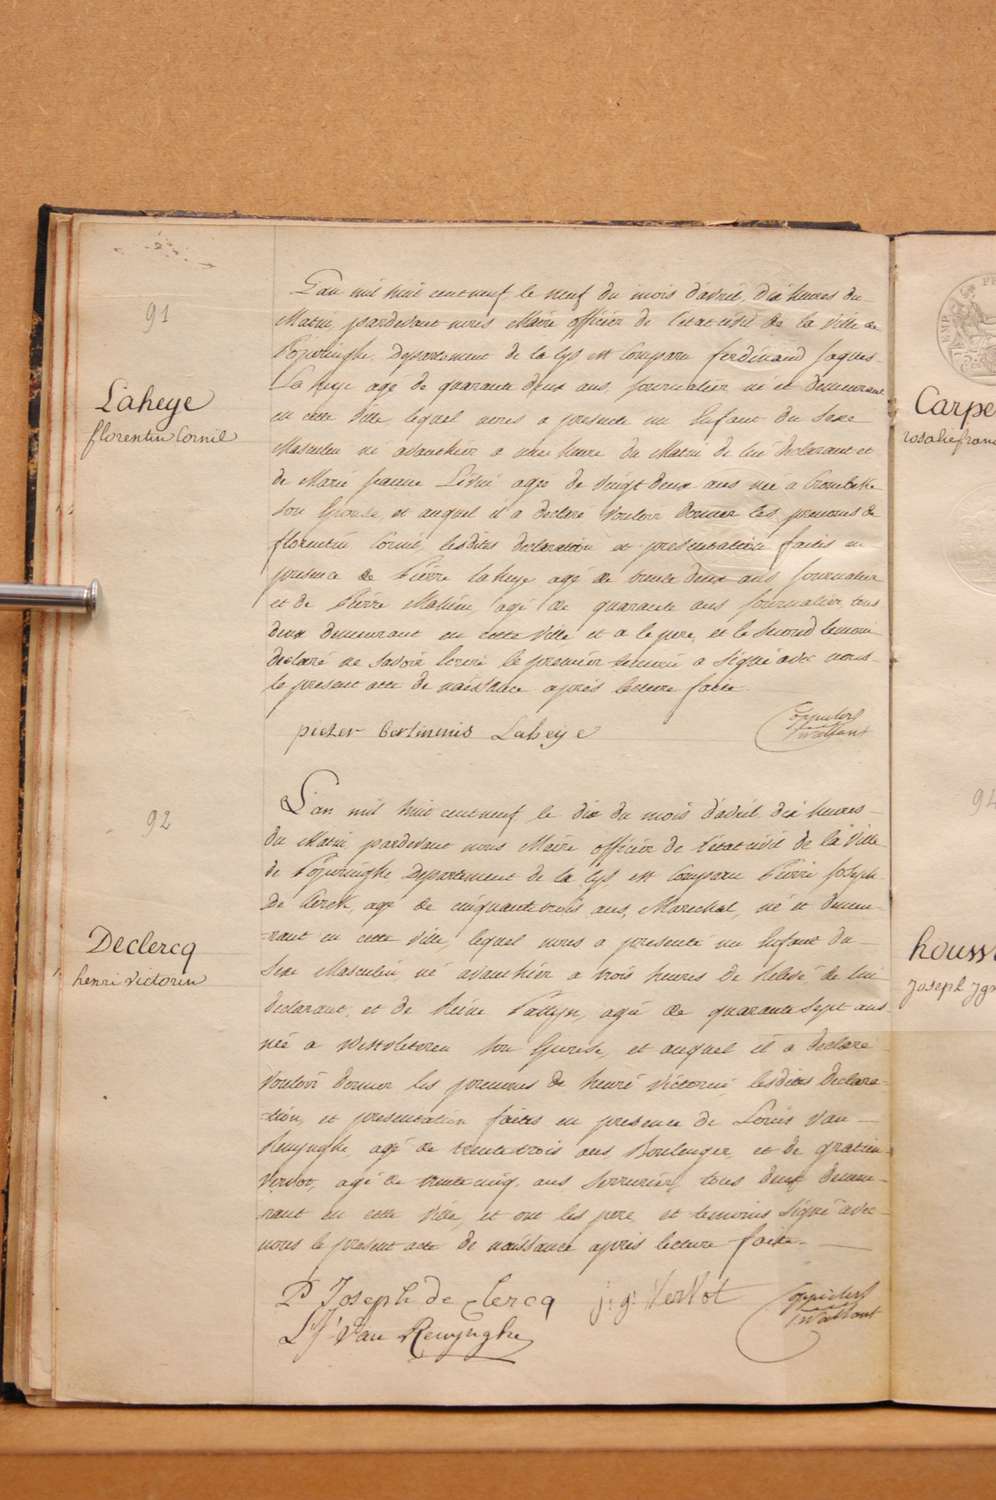 91
Laheye
florentin Cornil
L'an mil huit cent neuf le neuf du mois d'avril, dix heures du
Matin, pardevant nous Maire officier de l'etat civil de la Ville de
Poperinghe, Departement de la Lys est comparu ferdinand Jaques
La heye agé de quarante deux ans, journalier né et demeurant
en cette Ville, lequel nous a presenté un Enfant du Sexe
Masculin né avanthier a une heure du Matin de lui declarant et
de Marie Jeanne agée de Vingt deux ans née a Crombeke
son Epouse, et auquel il a declaré vouloir donner les prenoms de
florentin Cornil, lesdites declaration et presentation faites en
presence de Pierre Laheye agé de trente deux ans journalier
et de Pierre agé de quarante ans journalier, tous
deux demeurant en cette Ville et a le pere, et le second temoin
declaré ne savoir écrire le premier temoin a signé avec nous
le present acte de naissance après lecture faite.
pieter Laheye
92
Declercq
henri Victorin
L'an mil huit cent neuf le dix du mois d'avril, dix heures
du Matin, pardevant nous Maire officier de l'etat civil de la Ville
de Poperinghe Departement de la Lys est comparu Pierre Joseph
De Clerck, agé de cinquante trois ans, Marechal, né et demeu-
rant en cette Ville, lequel nous a presenté un Enfant du
Sexe Masculin né avanthier a trois heures de relevé, de lui
declarant, et de Reine agée de quarante Sept ans
née a Westvleteren son Epouse, et auquel il a declaré
vouloir donner les prenoms de henri Victorin, lesdites declara-
tion, et presentation faites en presence de Louis Van
Renynghe, agé de trente trois ans Boulenger, et de gratien
Vervot, agé de trente cinq ans Serrurier, tous deux demeu-
rant en cette Ville, et ont les pere, et temoins signé avec
nous le present acte de naissance après lecture faite.
P Joseph de Clercq j: g: Vervot
L: J: Van Renynghe
Carpe
rosalie fran
94
houss
Joseph Ign